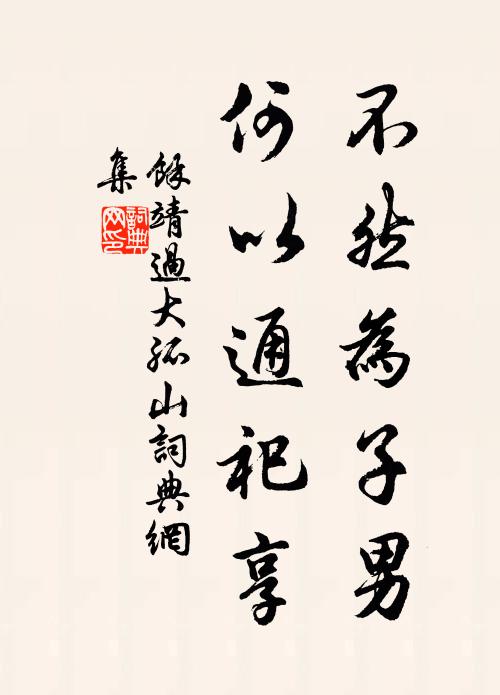 不然為子男
何以通祀享
餘靖過大孤山詞典網
集
詞典
网印